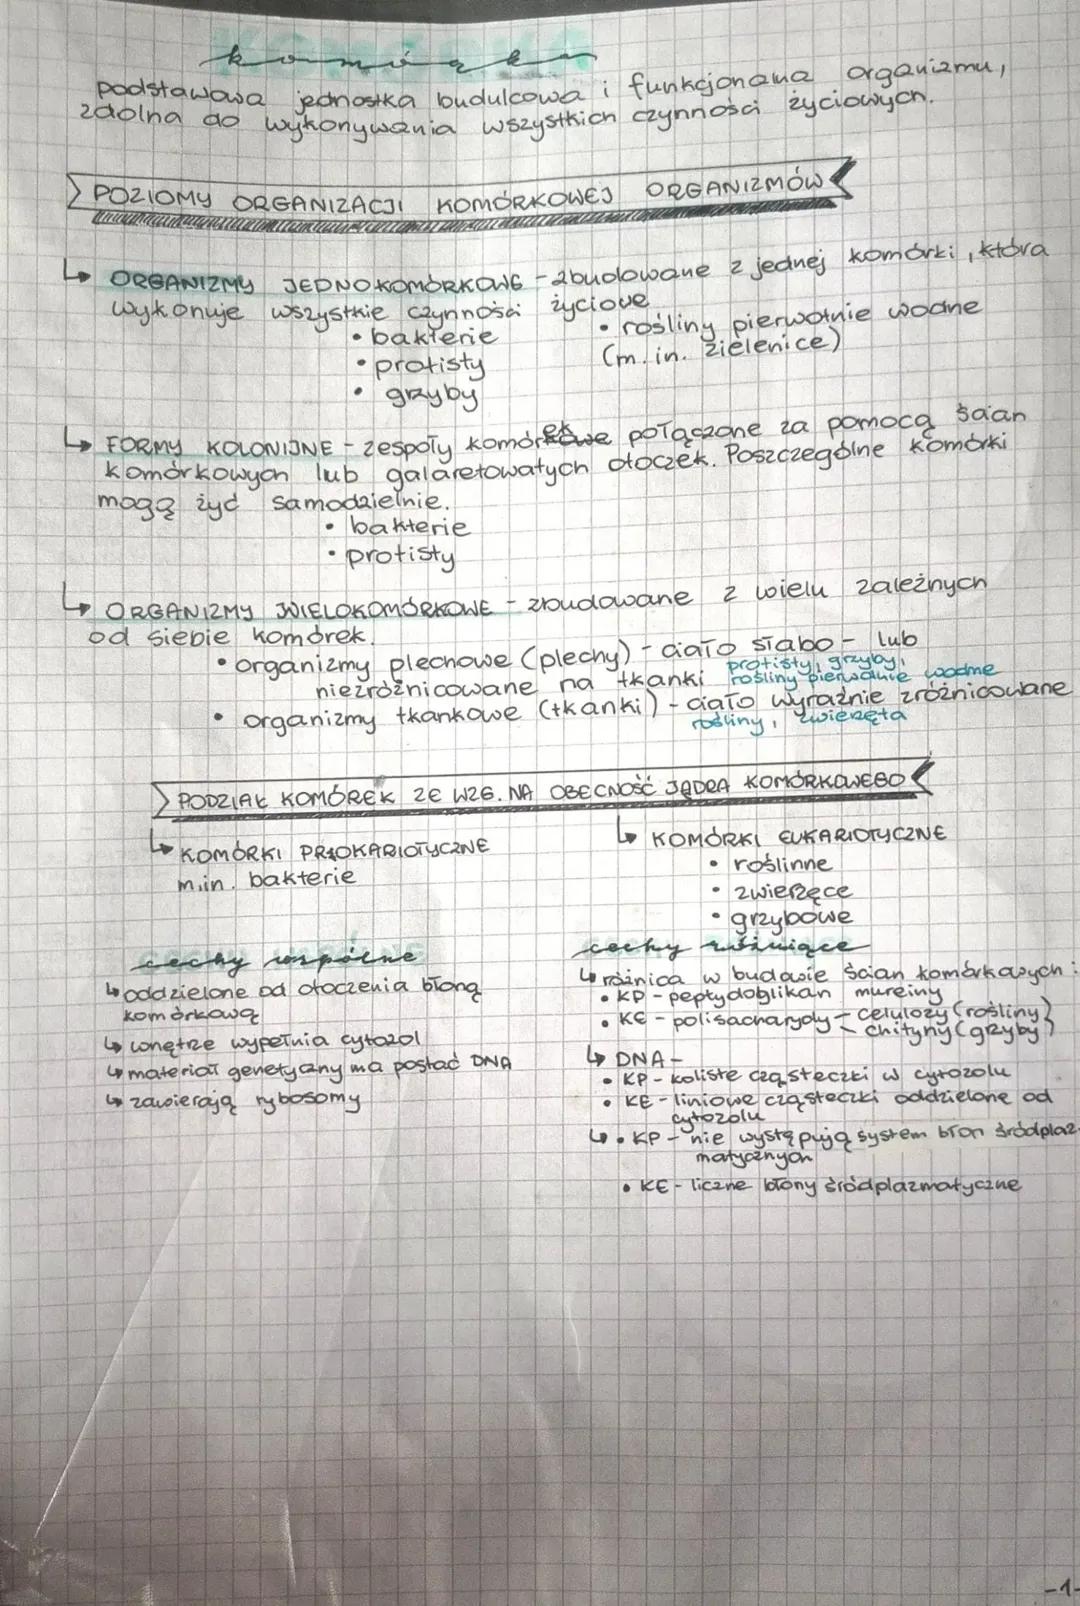 komórka
podstawowa jednostka budulcowa i funkcjonalna organizmu,
zdolna do wykonywania wszystkich czynności życiowych.
POZIOMY ORGANIZACJI KOMÓRKOWEJ ORGANIZMÓW
↳ ORGANIZMY JEDNOKOMÓRKOWE - zbudowane z jednej komórki, która
wykonuje wszystkie czynności życiowe
• bakterie
• rośliny pierwotnie wodne
• protisty
(m.in. zielenice)
• grzyby
↳ FORMY KOLONIJNE - zespoły komórek połączone za pomocą ścian
komórkowych lub galaretowatych otoczek. Poszczególne komórki
mogą żyć samodzielnie.
• bakterie
• protisty
↳ ORGANIZMY WIELOKOMÓRKOWE - zbudowane z wielu zależnych
od siebie komórek.
• organizmy plechowe (plechy) - ciało słabo - lub
niezróżnicowane na tkanki protisty, grzyby,
rośliny pierwotnie wodne
• organizmy tkankowe (tkanki) - ciało wyraźnie zróżnicowane
rośliny, zwierzęta
PODZIAŁ KOMÓREK ZE WZG. NA OBECNOŚĆ JĄDRA KOMÓRKOWEGO
↳ KOMÓRKI PROKARIOTYCZNE
m.in. bakterie
↳ KOMÓRKI EUKARIOTYCZNE
• roślinne
• zwierzęce
• grzybowe
cechy wspólne
↳ oddzielone od otoczenia błoną
komórkową
↳ wnętrze wypełnia cytozol
↳ materiał genetyczny ma postać DNA
↳ zawierają rybosomy
cechy różniące
↳ różnica w budowie ścian komórkowych:
• KP - peptydoglikan mureiny
• KE - polisacharydy - celulozy (rośliny)
- chityny (grzyby)
↳ DNA -
• KP - koliste cząsteczki w cytozolu
• KE - liniowe cząsteczki oddzielone od
cytozolu
↳ • KP - nie występują system błon śródplaz-
matycznych
• KE - liczne błony śródplazmatyczne
-1-